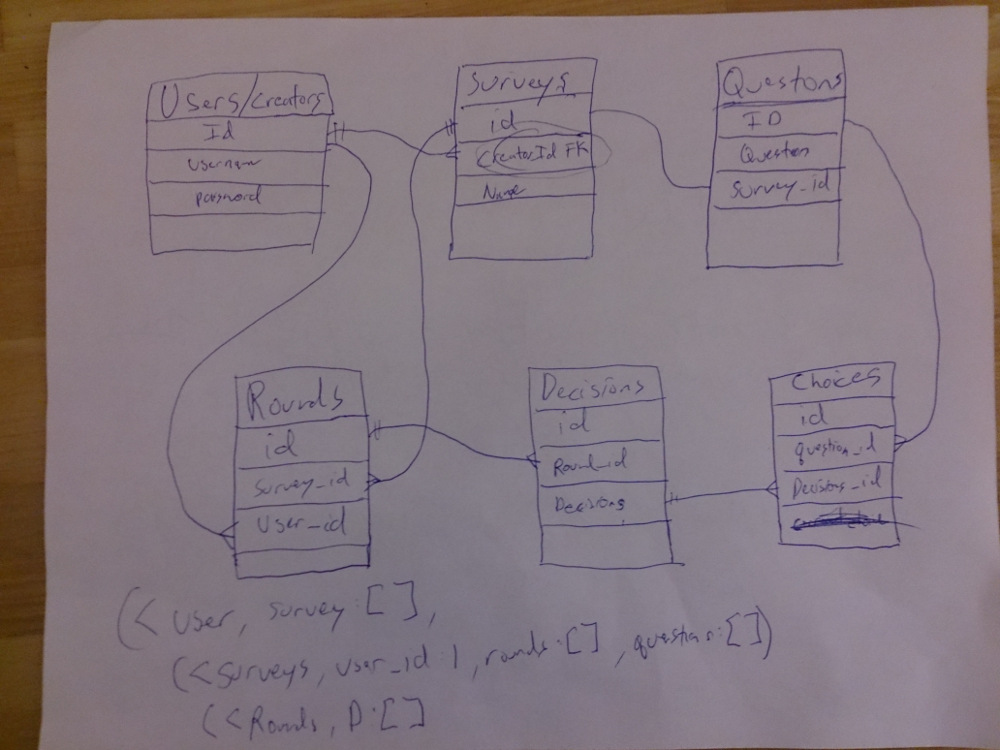 Users/Creators
Id
username
password
Surveys
id
Creator_Id FK
Name
Questions
ID
Question
Survey_id
Rounds
id
Survey_id
User_id
Decisions
id
Round_id
Decisions
Choices
id
question_id
Decisions_id
(< user, survey:[],
(< surveys, user_id:1, rounds:[], question:[])
(< Rounds, D:[]